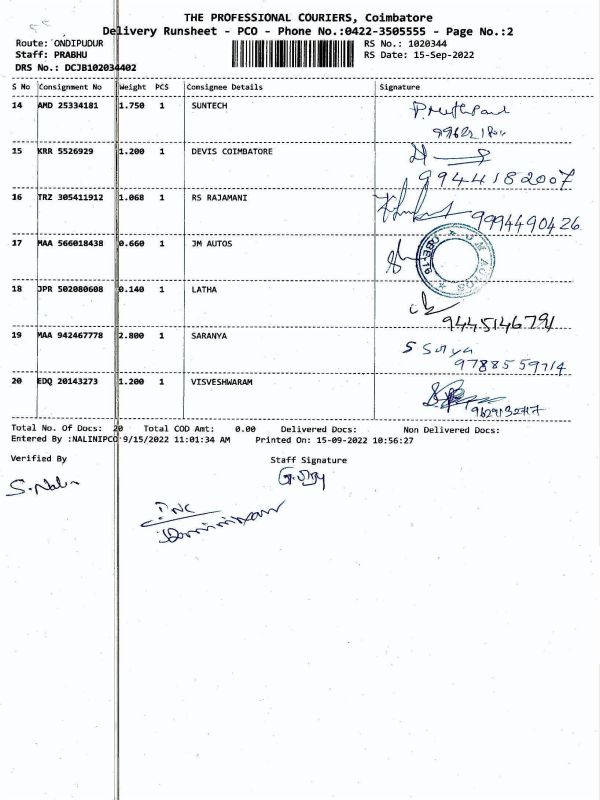 THE PROFESSIONAL COURIERS, Coimbatore
Delivery Runsheet - PCO - Phone No.:0422-3505555 - Page No.:2
Route: ONDIPUDUR
RS No.: 1020344
Staff: PRABHU
RS Date: 15-Sep-2022
DRS No.: DCJB102034402
S No Consignment No Weight PCS Consignee Details Signature
14 AMD 25334181 1.750 1 SUNTECH
15 KRR 5526929 1.200 1 DEVIS COIMBATORE
9944182007
16 TRZ 305411912 1.068 1 RS RAJAMANI
9994490426
17 MAA 566018438 0.660 1 JM AUTOS
JM AUTOS
CBE-16
18 JPR 502080608 0.140 1 LATHA
9445146791
19 MAA 942467778 2.800 1 SARANYA
S Surya
9788559714
20 EDQ 20143273 1.200 1 VISVESHWARAM
Total No. Of Docs: 20 Total COD Amt: 0.00 Delivered Docs: Non Delivered Docs:
Entered By :NALINIPCO 9/15/2022 11:01:34 AM Printed On: 15-09-2022 10:56:27
Verified By Staff Signature